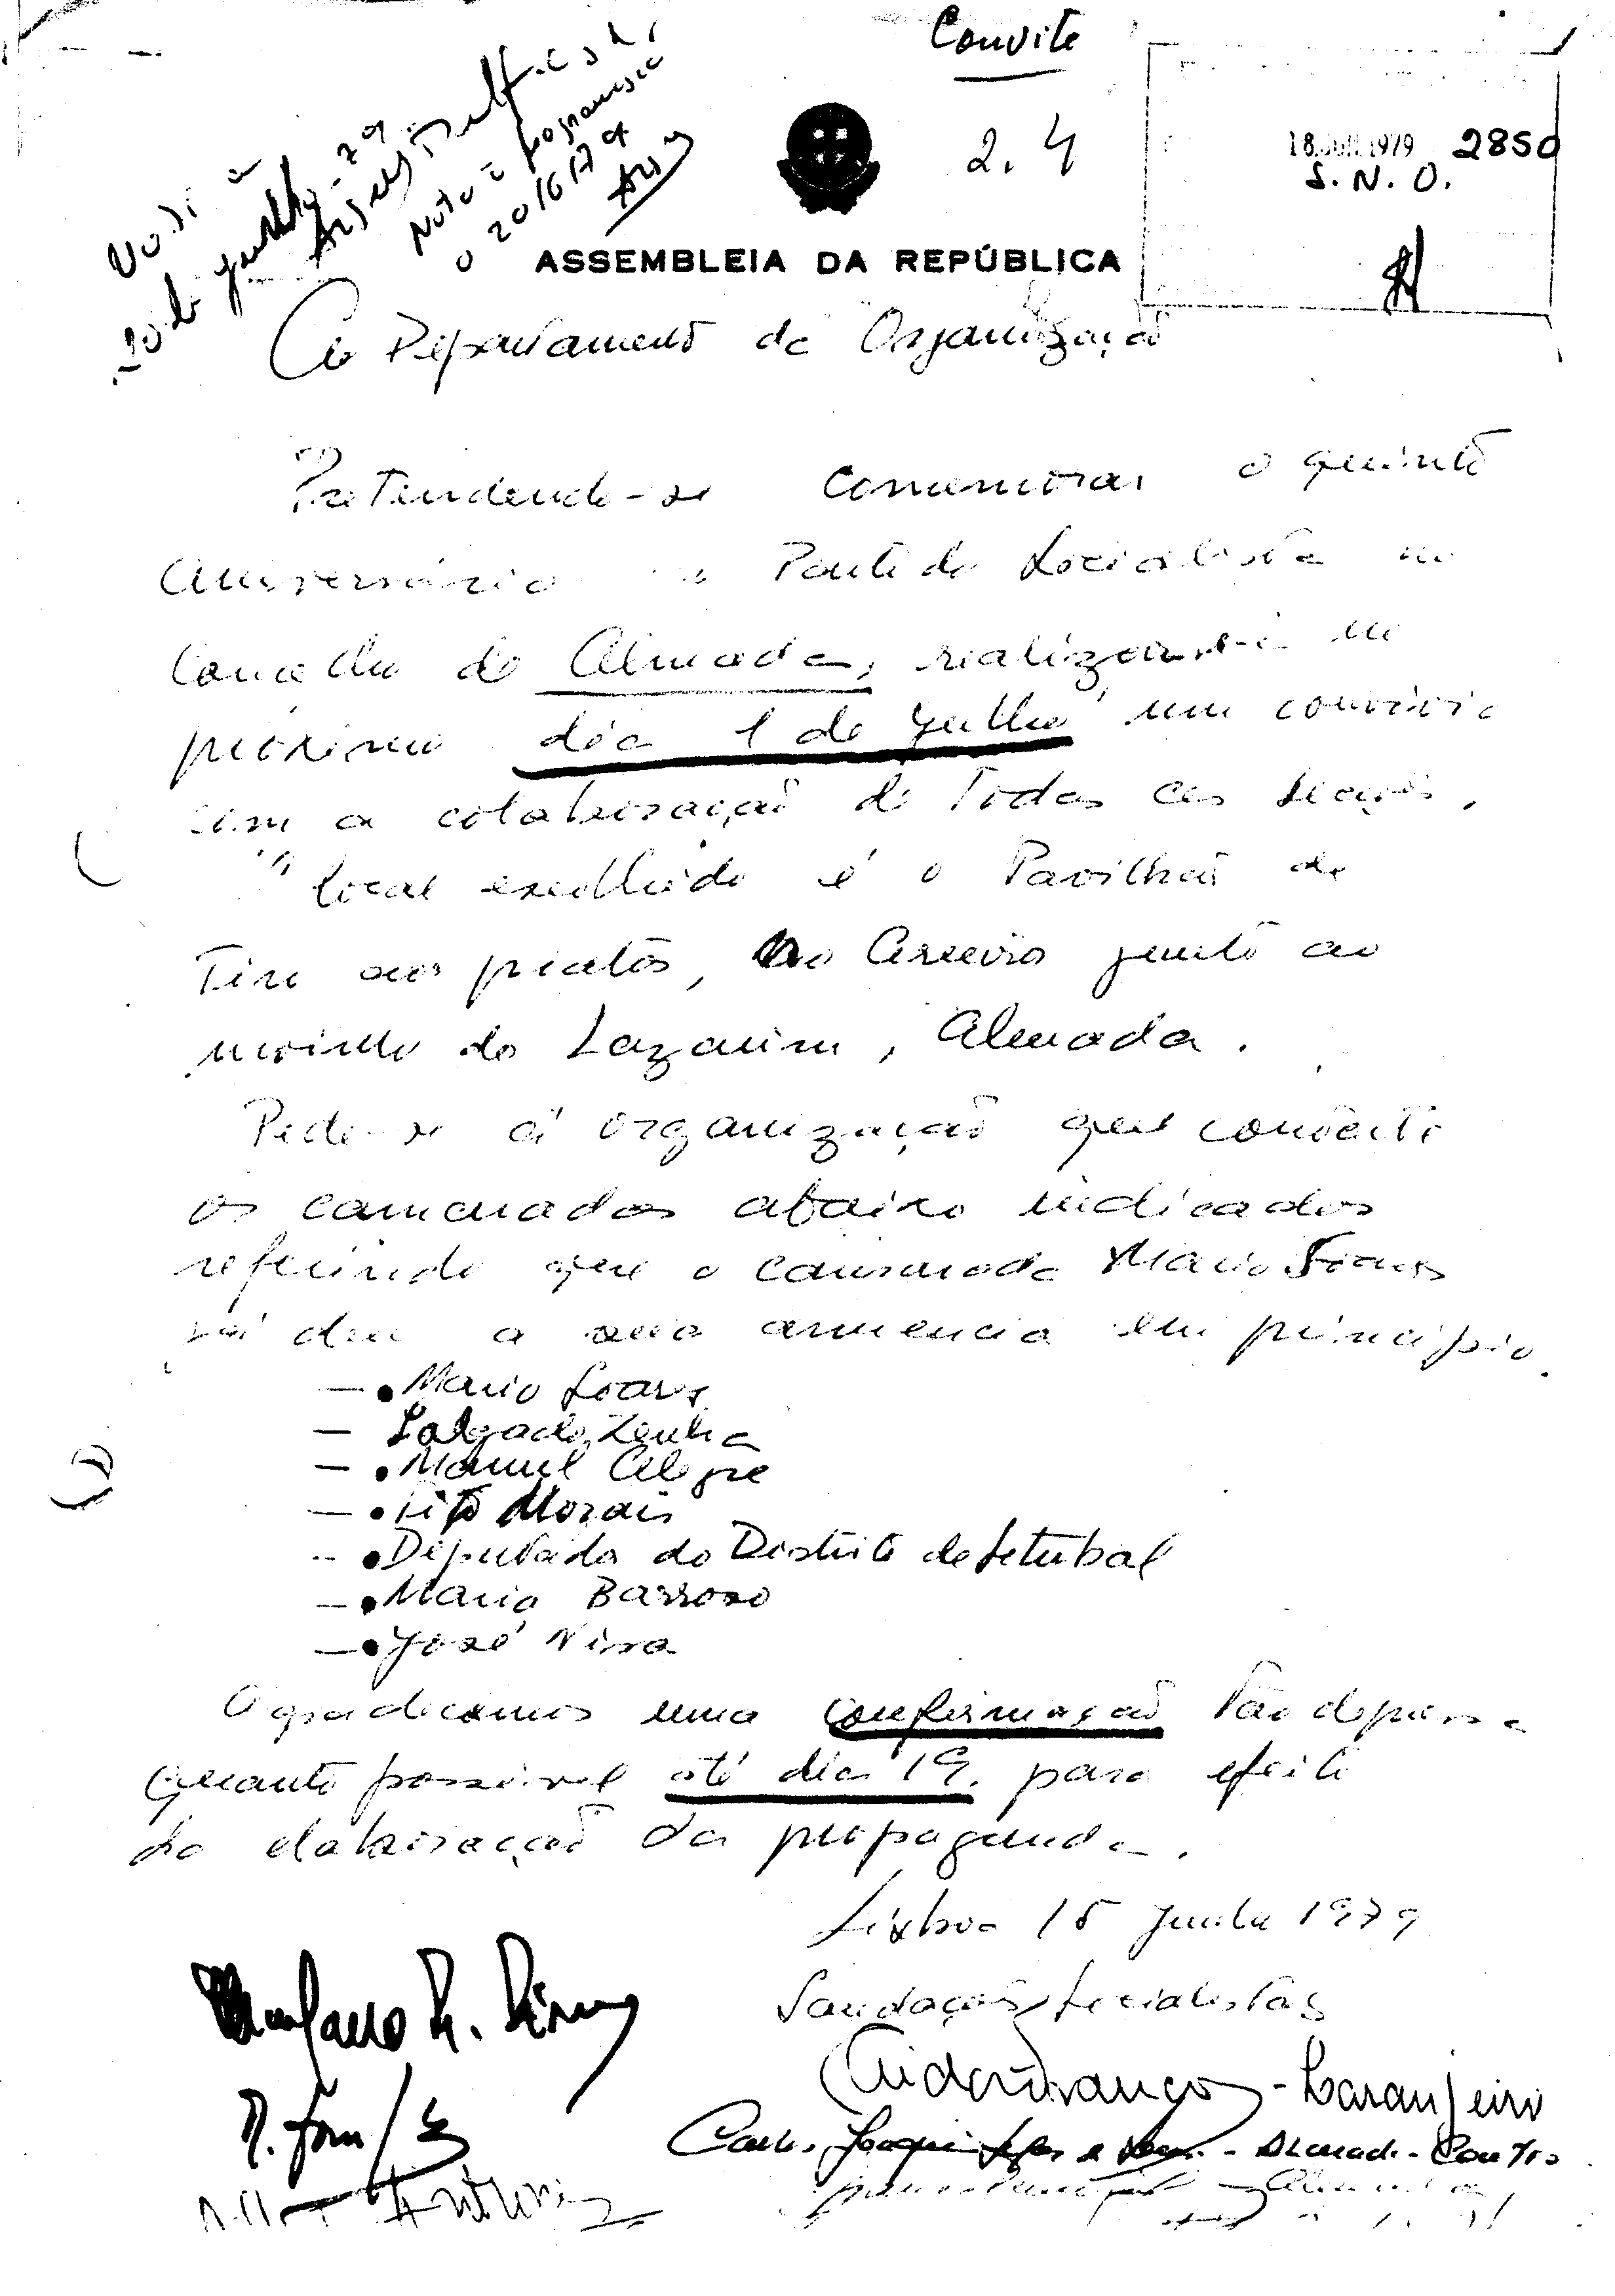 Convite
2.4
18 JUN 1979 2850
S. N. O.
Nota
20/6/79
ASSEMBLEIA DA REPÚBLICA
Ao Departamento de Organização
Pretendendo-se comemorar o quinto
aniversário Partido Socialista no
Concelho de Almada, realizar-se-á no
próximo dia 1 de Julho um convívio
com a colaboração de todas as secções.
O local escolhido é o Pavilhão de
Tiro aos pratos, no Areeiro junto ao
moinho do Lazarim, Almada.
Pede-se à organização que convide
os camaradas abaixo indicados
referindo que o camarada Mario Soares
já deu a sua anuência em princípio.
— • Mario Soares
— Salgado Zenha
— • Manuel Alegre
— • Tito Morais
-- • Deputados do Distrito de Setubal
— • Maria Barroso
— • José Niza
Agradecemos uma confirmação tão depressa
quanto possível até dia 19. para efeito
da elaboração da propaganda.
Lisboa 15 Junho 1979
Saudações Socialistas
- Laranjeiro
Carlos Joaquim